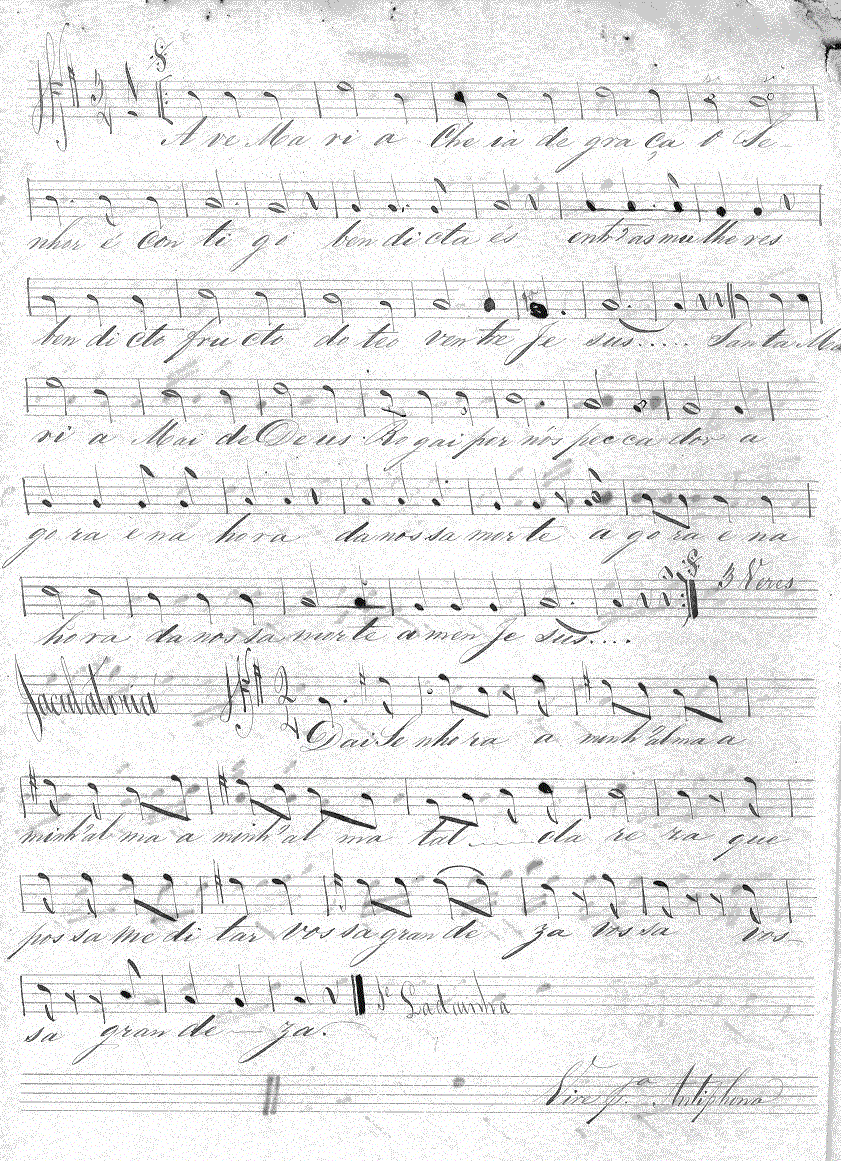 A ve Ma ri a Che ia de gra ça o Se-
nhor é con ti go ben dicta és entr'as mulheres
ben di cto fru cto do teo ventre Je sus..... Santa Ma
ri a Mai de Deus Ro gai por nós pec ca dor a
go ra e na hora da nossa morte a go ra e na
3 Vezes
hora da nossa morte amen Je sus....
Jaculatoria
Dai Se nho ra a minh'alma a
minh'al ma a minh'al ma tal cla re za que
pos sa me di tar vos sa gran de za vossa vos-
Ladainha
sa gran de za.
Vire p.a Antiphona